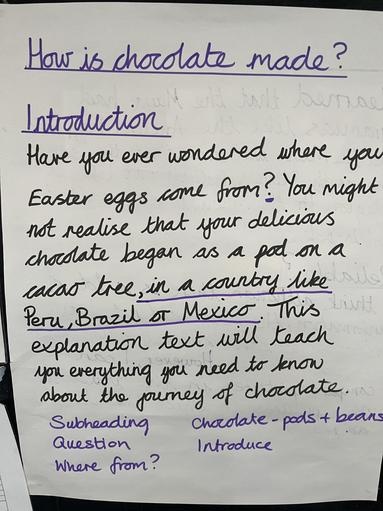 How is chocolate made?
Introduction
Have you ever wondered where you
Easter eggs come from? You might
not realise that your delicious
chocolate began as a pod on a
cacao tree, in a country like
Peru, Brazil or Mexico. This
explanation text will teach
you everything you need to know
about the journey of chocolate.
Subheading Chocolate - pods + beans
Question Introduce
Where from?